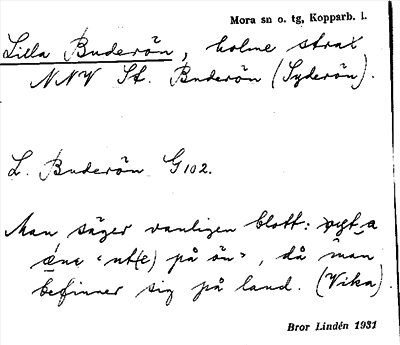 Mora sn o. tg, Kopparb. l.
Lilla Buderön, holme strax
NNV St. Buderön (Syderön).
L. Buderön G102.
Man säger vanligen blott: a
"ut(e) på ön", då man
befinner sig på land. (Vika).
Bror Lindén 1931